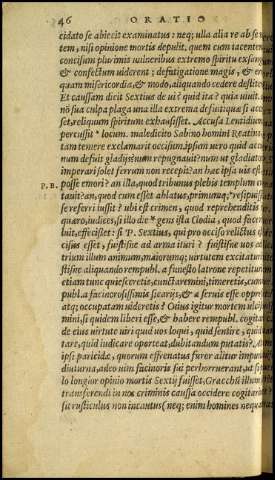 46 ORATIO
cidato se abiecit examinatus: neq; ulla alia re ab se
tem, nisi opinione mortis depulit, quem cum iacentem
concisum plurimis uulneribus extremo spiritu exsang
& confectum uiderent; defatigatione magis, & er
quàm misericordia, & modo, aliquando cedere destite
Et caussam dicit Sextius de ui? quid ita? quia uiuit.
nõ sua culpa plaga una illa extrema defuit: quæ si acc
set, reliquum spiritum exhausisset. Accusa Lentidium
percussit locum. maledicito Sabino homini Reatin
tam temere exclamarit occisum. ipsum uero quid acc
num defuit gladijs? num repugnauit? num ut gladia
imperari solet ferrum non recepit? an hæc ipsa uis est
P.B. posse emori? an illa, quod tribunus plebis templum
tauit? an, quod cum esset ablatus, primumq; resipuis
se referri iussit? ubi est crimen, quod reprehenditis
quæro, iudices, si illo die gens ista Clodia, quod facer
luit, effecisset: si P. Sextius, qui pro occiso relictus
cisus esset, fuistis ne ad arma ituri? fuistis ne uos
trium illum animum, maiorumq; uirtutem excitatu
stis ne aliquando rempubl. a funesto latrone repetitur
etiam tunc quiesceretis, cunctaremini, timeretis, cum
publ. a facinorosissimis sicarijs, & a seruis esse oppre
atq; occupatam uideretis? Cuius igitur mortem ulcis
mini, si quidem liberi esse, & habere rempubl. cogita
de eius uirtute uiui quid uos loqui, quid sentire, quid
tare, quid iudicare oporteat, dubitandum putatis?
ipsi paricidæ, quorum effrenatus furor alitur impun
diuturna, adeo uim facinoris sui perhorruerant, ut si
lo longior opinio mortis Sextij fuisset, Gracchũ illum
transferendi in nos criminis caussa occidere cogitarint
sit rusticulus non incautus (neq; enim homines nequa